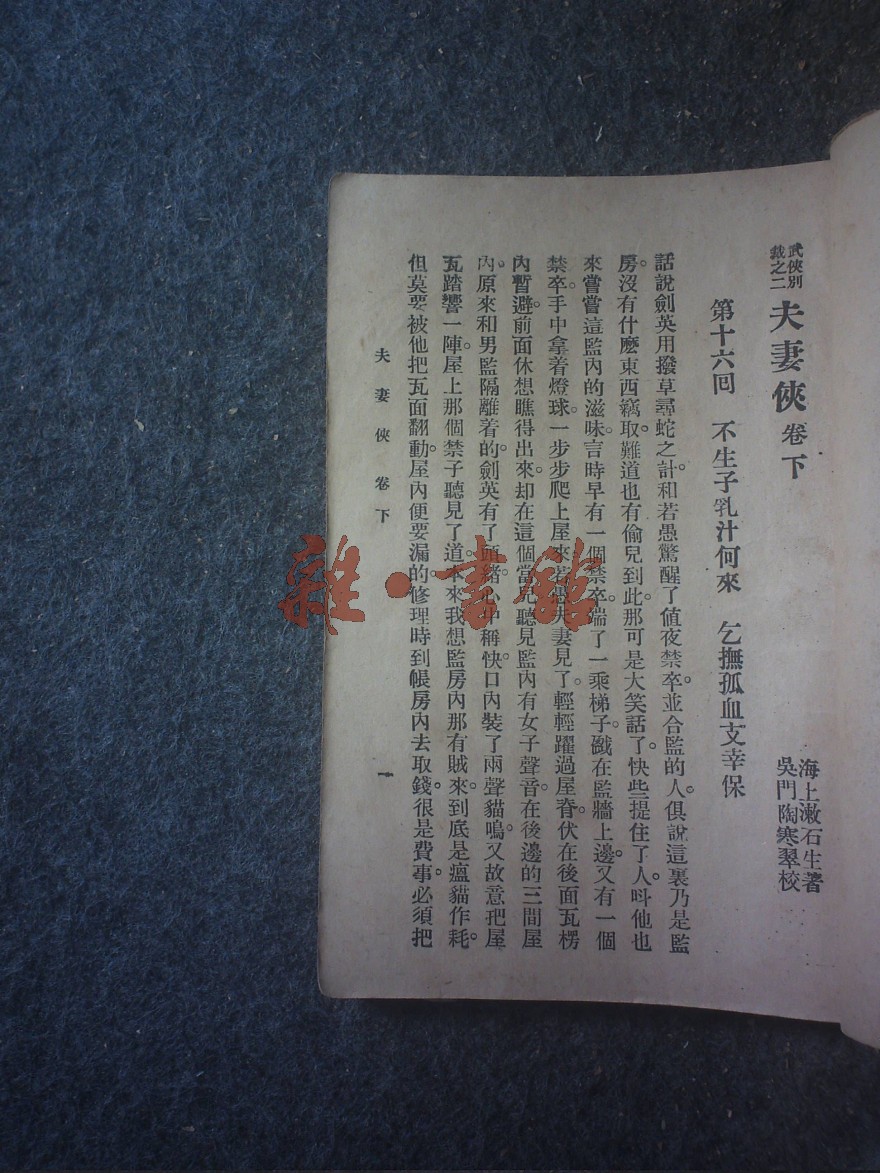 武俠別裁之二
夫妻俠 卷下
海上漱石生著
吳門陶寒翠校
第十六回 不生子乳汁何來 乞撫孤血支幸保
話說劍英用撥草尋蛇之計。和若愚驚醒了値夜禁卒。並合監的人。俱說這裏乃是監
房。沒有什麽東西竊取。難道也有偷兒到此。那可是大笑話了。快些提住了人。呌他也
來嘗嘗這監內的滋味。言時早有一個禁卒。端了一乘梯子。戤在監牆上邊。又有一個
禁卒。手中拿着燈球。一步步爬上屋來。若愚夫妻見了。輕輕躍過屋脊。伏在後面瓦楞
內暫避。前面休想瞧得出來。却在這個當兒。聽見監內有女子聲音。在後邊的三間屋
內。原來和男監隔離着的。劍英有了頭緒。心中稱快。口內裝了兩聲貓鳴。又故意把屋
瓦踏響一陣。屋上那個禁子聽見了道。本來我想監房內那有賊來。到底是瘟貓作耗。
但莫要被他把瓦面翻動。屋內便要漏的。修理時到帳房內去取錢。很是費事。必須把
夫妻俠 卷下
一
雜·書館